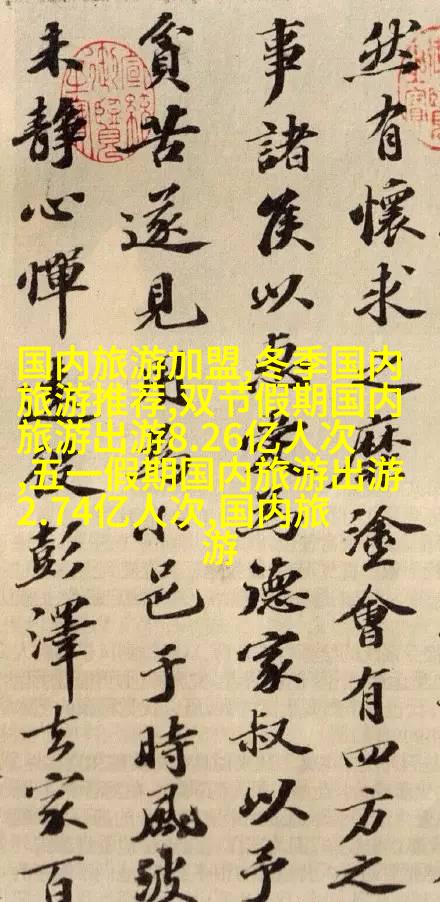 然有懷求之靡塗會有四方之
事諸侯以惠愛為德家叔以予
貧苦遂見用為小邑于時風波
未靜心憚遠役彭澤去家百
国内旅游加盟,冬季国内
旅游推荐,双节假期国内
旅游出游8.26亿人次
,五一假期国内旅游出游
2.74亿人次,国内旅
游